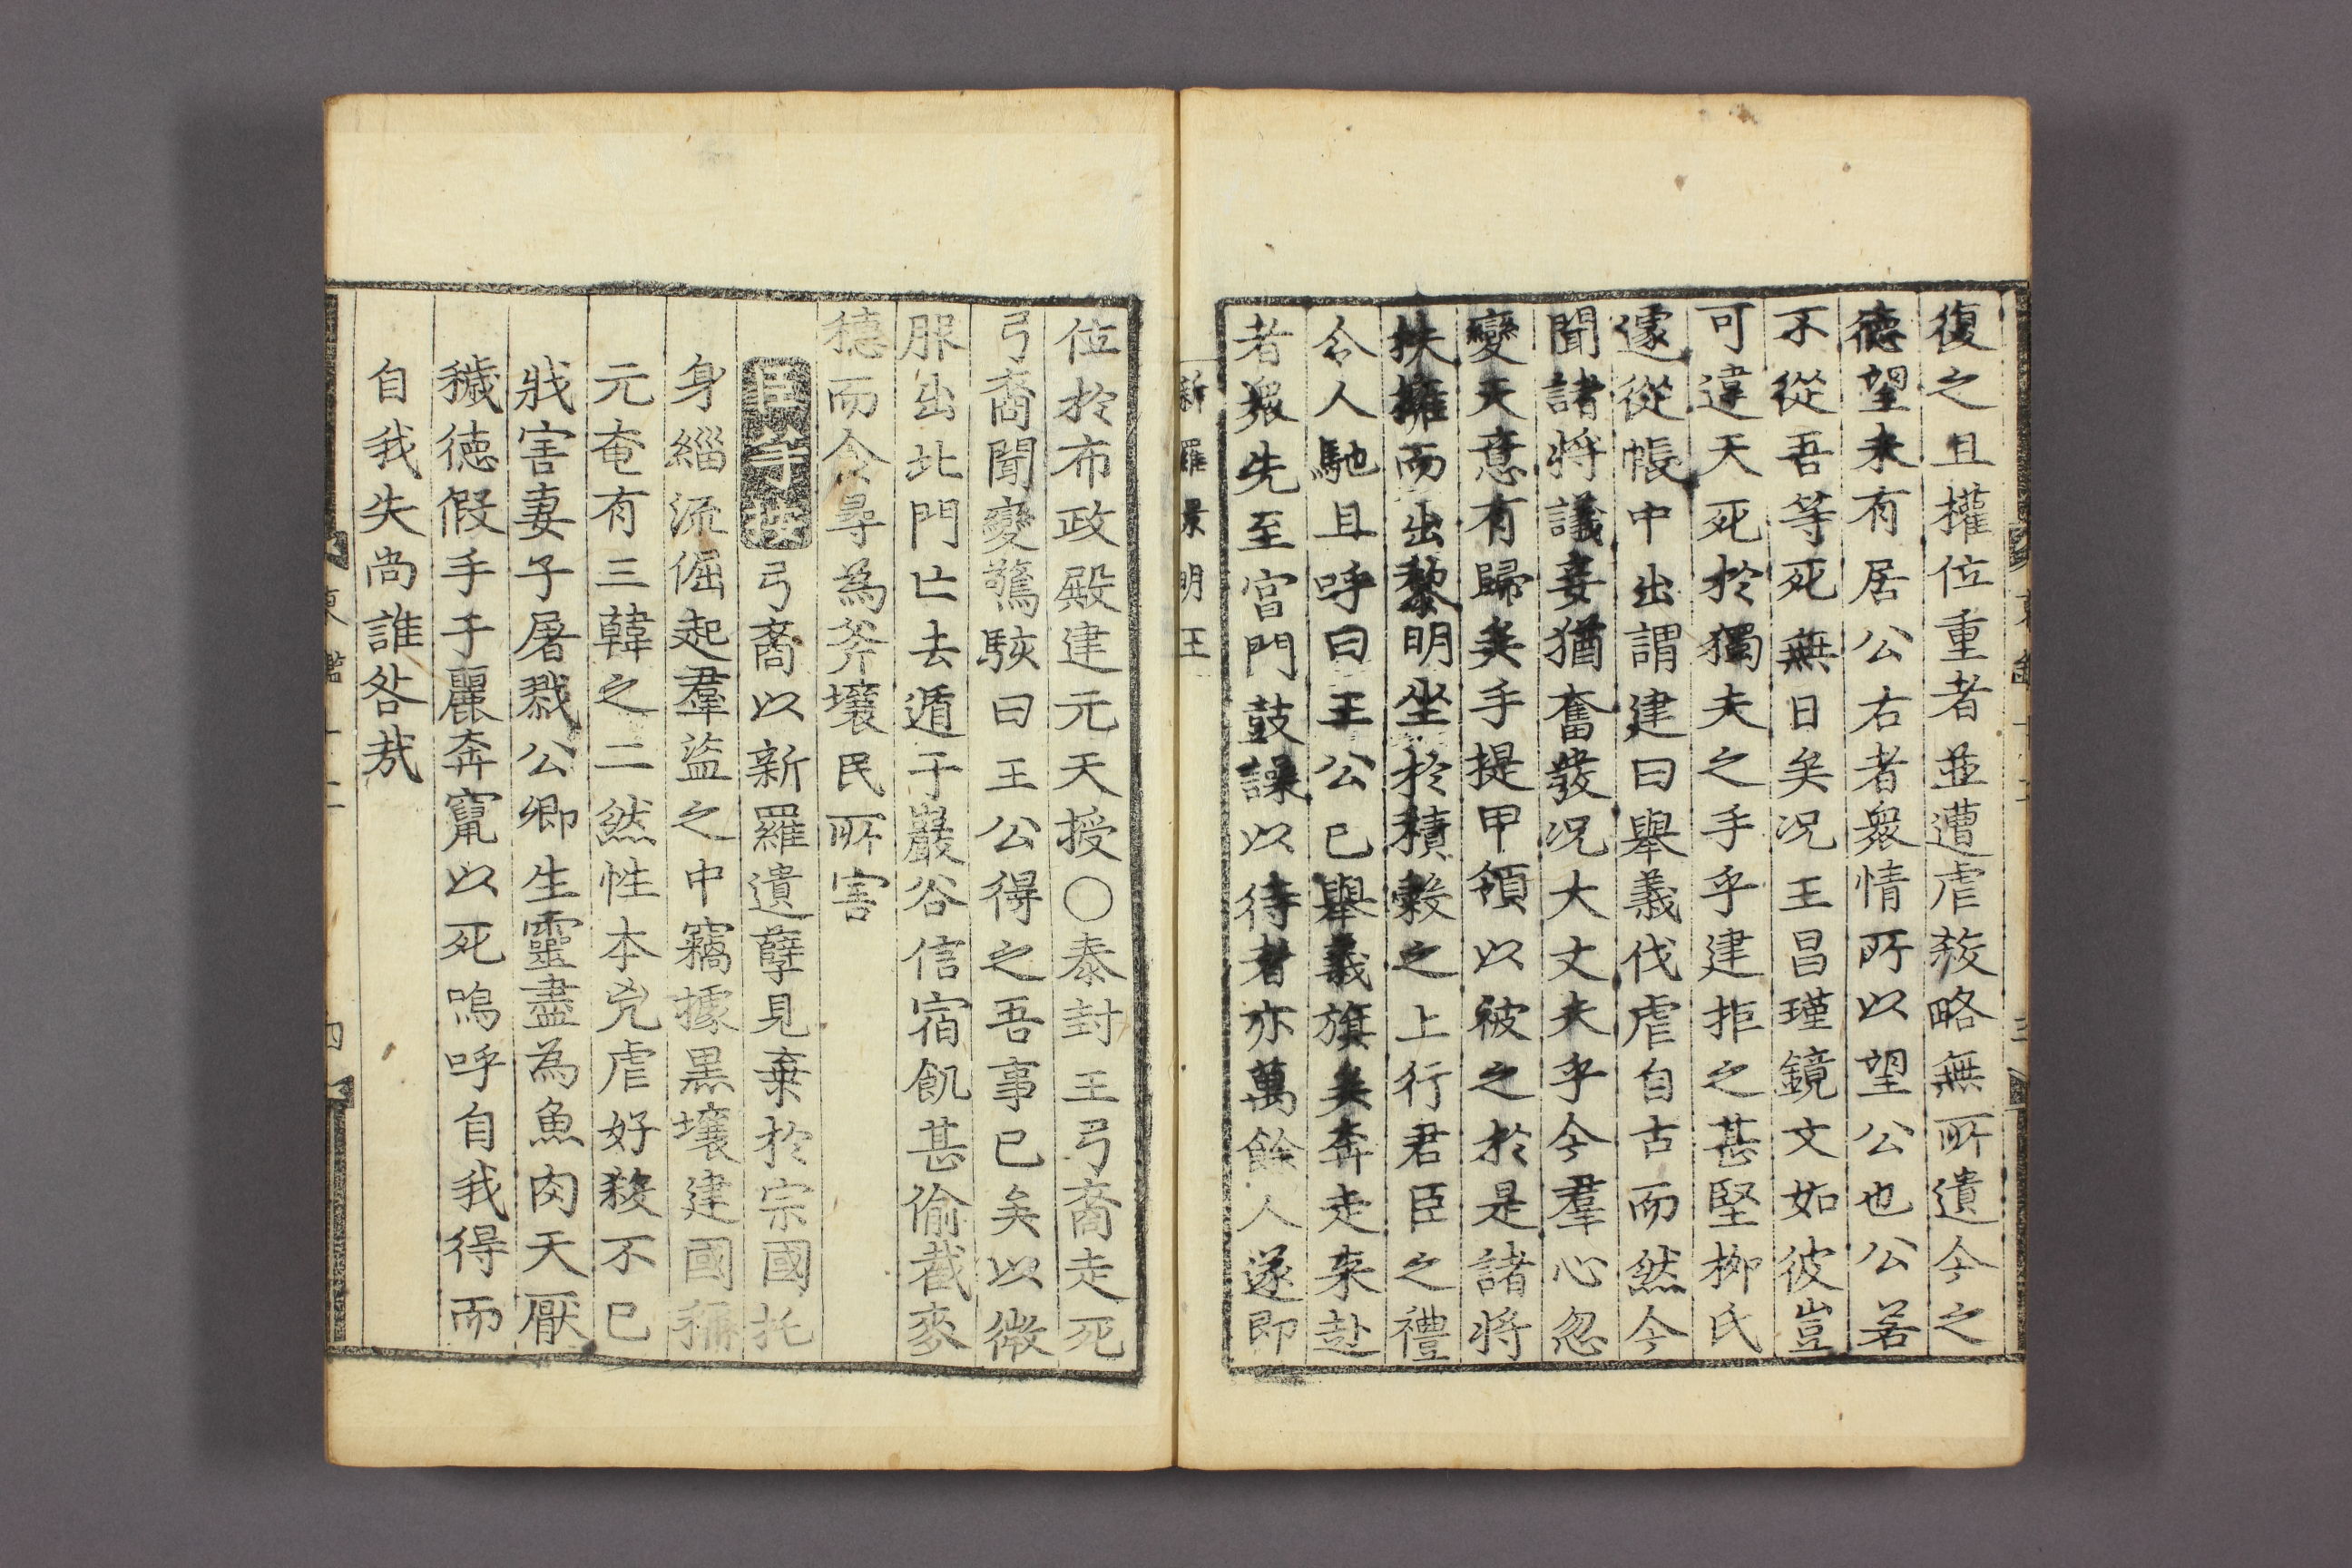 復之且權位重者並遭虐殺略無所遺今之
德望未有居公右者衆情所以望公也公若
不從吾等死無日矣況王昌瑾鏡文如彼豈
可違天死於獨夫之手乎建拒之甚堅柳氏
遽從帳中出謂建曰舉義伐虐自古而然今
聞諸將議妾猶奮發况大丈夫乎今羣心忽
變天意有歸矣手提甲領以被之於是諸將
扶擁而出黎明坐於積穀之上行君臣之禮
令人馳且呼曰王公已舉義旗矣奔走来赴
者衆先至宮門鼓譟以待者亦萬餘人遂即
新羅景明王
位於布政殿建元天授○泰封王弓裔走死
弓裔聞變驚駭曰王公得之吾事已矣以微
服出北門亡去遁于巖谷信宿飢甚偷截麥
穗而食尋為斧壤民所害
臣等按弓裔以新羅遺孽見棄於宗國托
身緇流倔起羣盜之中竊據黒壤建國稱
元奄有三韓之二然性本兇虐好殺不已
戕害妻子屠戮公卿生靈盡為魚肉天厭
穢德假手于麗奔竄以死嗚呼自我得而
自我失尚誰咎哉